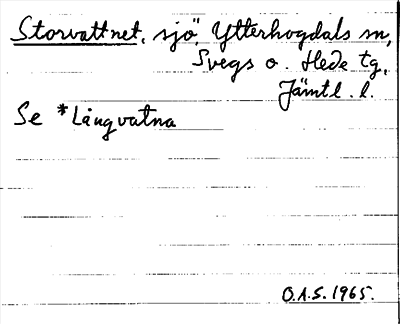 Storvattnet, sjö, Ytterhogdals sn,
Svegs o. Hede tg,
Jämtl. l.
Se *Långvatna
O.A.S. 1965.